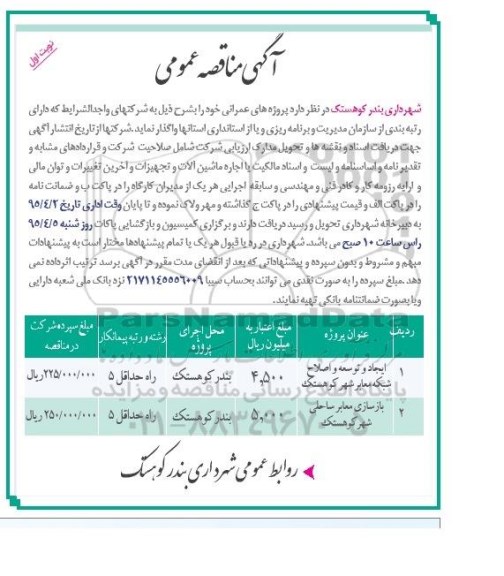 نوبت اول
آگهی مناقصه عمومی
شهرداری بندر کوهستک در نظر دارد پروژه های عمرانی خود را بشرح ذیل به شرکتهای واجدالشرایط که دارای
رتبه بندی از سازمان مدیریت و برنامه ریزی و یا از استانداری استانها واگذار نماید.شرکتها از تاریخ انتشار آگهی
جهت دریافت اسناد و نقشه ها و تحویل مدارک ارزیابی شرکت شامل صلاحیت شرکت و قراردادهای مشابه و
تقدیر نامه و اساسنامه و لیست و اسناد مالکیت یا اجاره ماشین آلات و تجهیزات و آخرین تغییرات و توان مالی
و ارایه رزومه کار و کادر فنی و مهندسی و سابقه اجرایی هر یک از مدیران کارگاه را در پاکت ب و ضمانت نامه
را در پاکت الف و قیمت پیشنهادی را در پاکت ج گذاشته و مهر ولاک نموده و تا پایان وقت اداری تاریخ ۹۵/۴/۲
به دبیرخانه شهرداری تحویل و رسید دریافت دارند و برگزاری کمیسیون و بازگشایی پاکات روز شنبه ۹۵/۴/۵
راس ساعت ۱۰ صبح می باشد. شهرداری در رد یا قبول هر یک یا تمام پیشنهادها مختار است به پیشنهادات
مبهم و مشروط و بدون سپرده و پیشنهاداتی که بعد از انقضای مدت مقرر در آگهی برسد ترتیب اثر داده نمی
دهد .مبلغ سپرده را به صورت نقدی می توانند بحساب سیبا ۲۱۷۱۱۴۵۵۵۶۰۰۹ نزد بانک ملی شعبه دارایی
ویا بصورت ضمانتنامه بانکی تهیه نمایند.
ردیف عنوان پروژه مبلغ اعتبار به میلیون ریال محل اجرای پروژه رشته و رتبه پیمانکار مبلغ سپرده شرکت در مناقصه
۱ ایجاد و توسعه و اصلاح شبکه معابر شهر کوهستک ۴,۵۰۰ بندر کوهستک راه حداقل ۵ ۲۲۵/۰۰۰/۰۰۰ریال
۲ بازسازی معابر ساحلی شهر کوهستک ۵,۰۰۰ بندر کوهستک راه حداقل ۵ ۲۵۰/۰۰۰/۰۰۰ ریال
روابط عمومی شهرداری بندر کوهستک
ParsNamadData
پایگاه اطلاع رسانی مناقصه و مزایده
۰۲۱-۸۸۳۴۹۶۷۰-۵